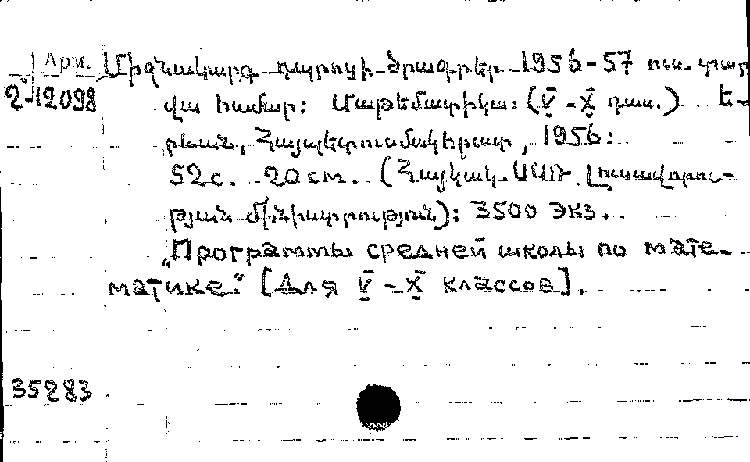 Арм.
2-12098
Միջնակարգ դպրոցի ծրագրեր 1956-57 ուս. տար
վա համար: Մաթեմատիկա: (V-X դաս.) Ե-
րևան, Հայպետուսմանկհրատ, 1956:
52с. 20см. (Հայկական ՍՍՌ Լուսավորու-
թյան մինիստրություն): 3500 экз.
„Программы средней школы по мате-
матике." [Для V-X классов].
35283